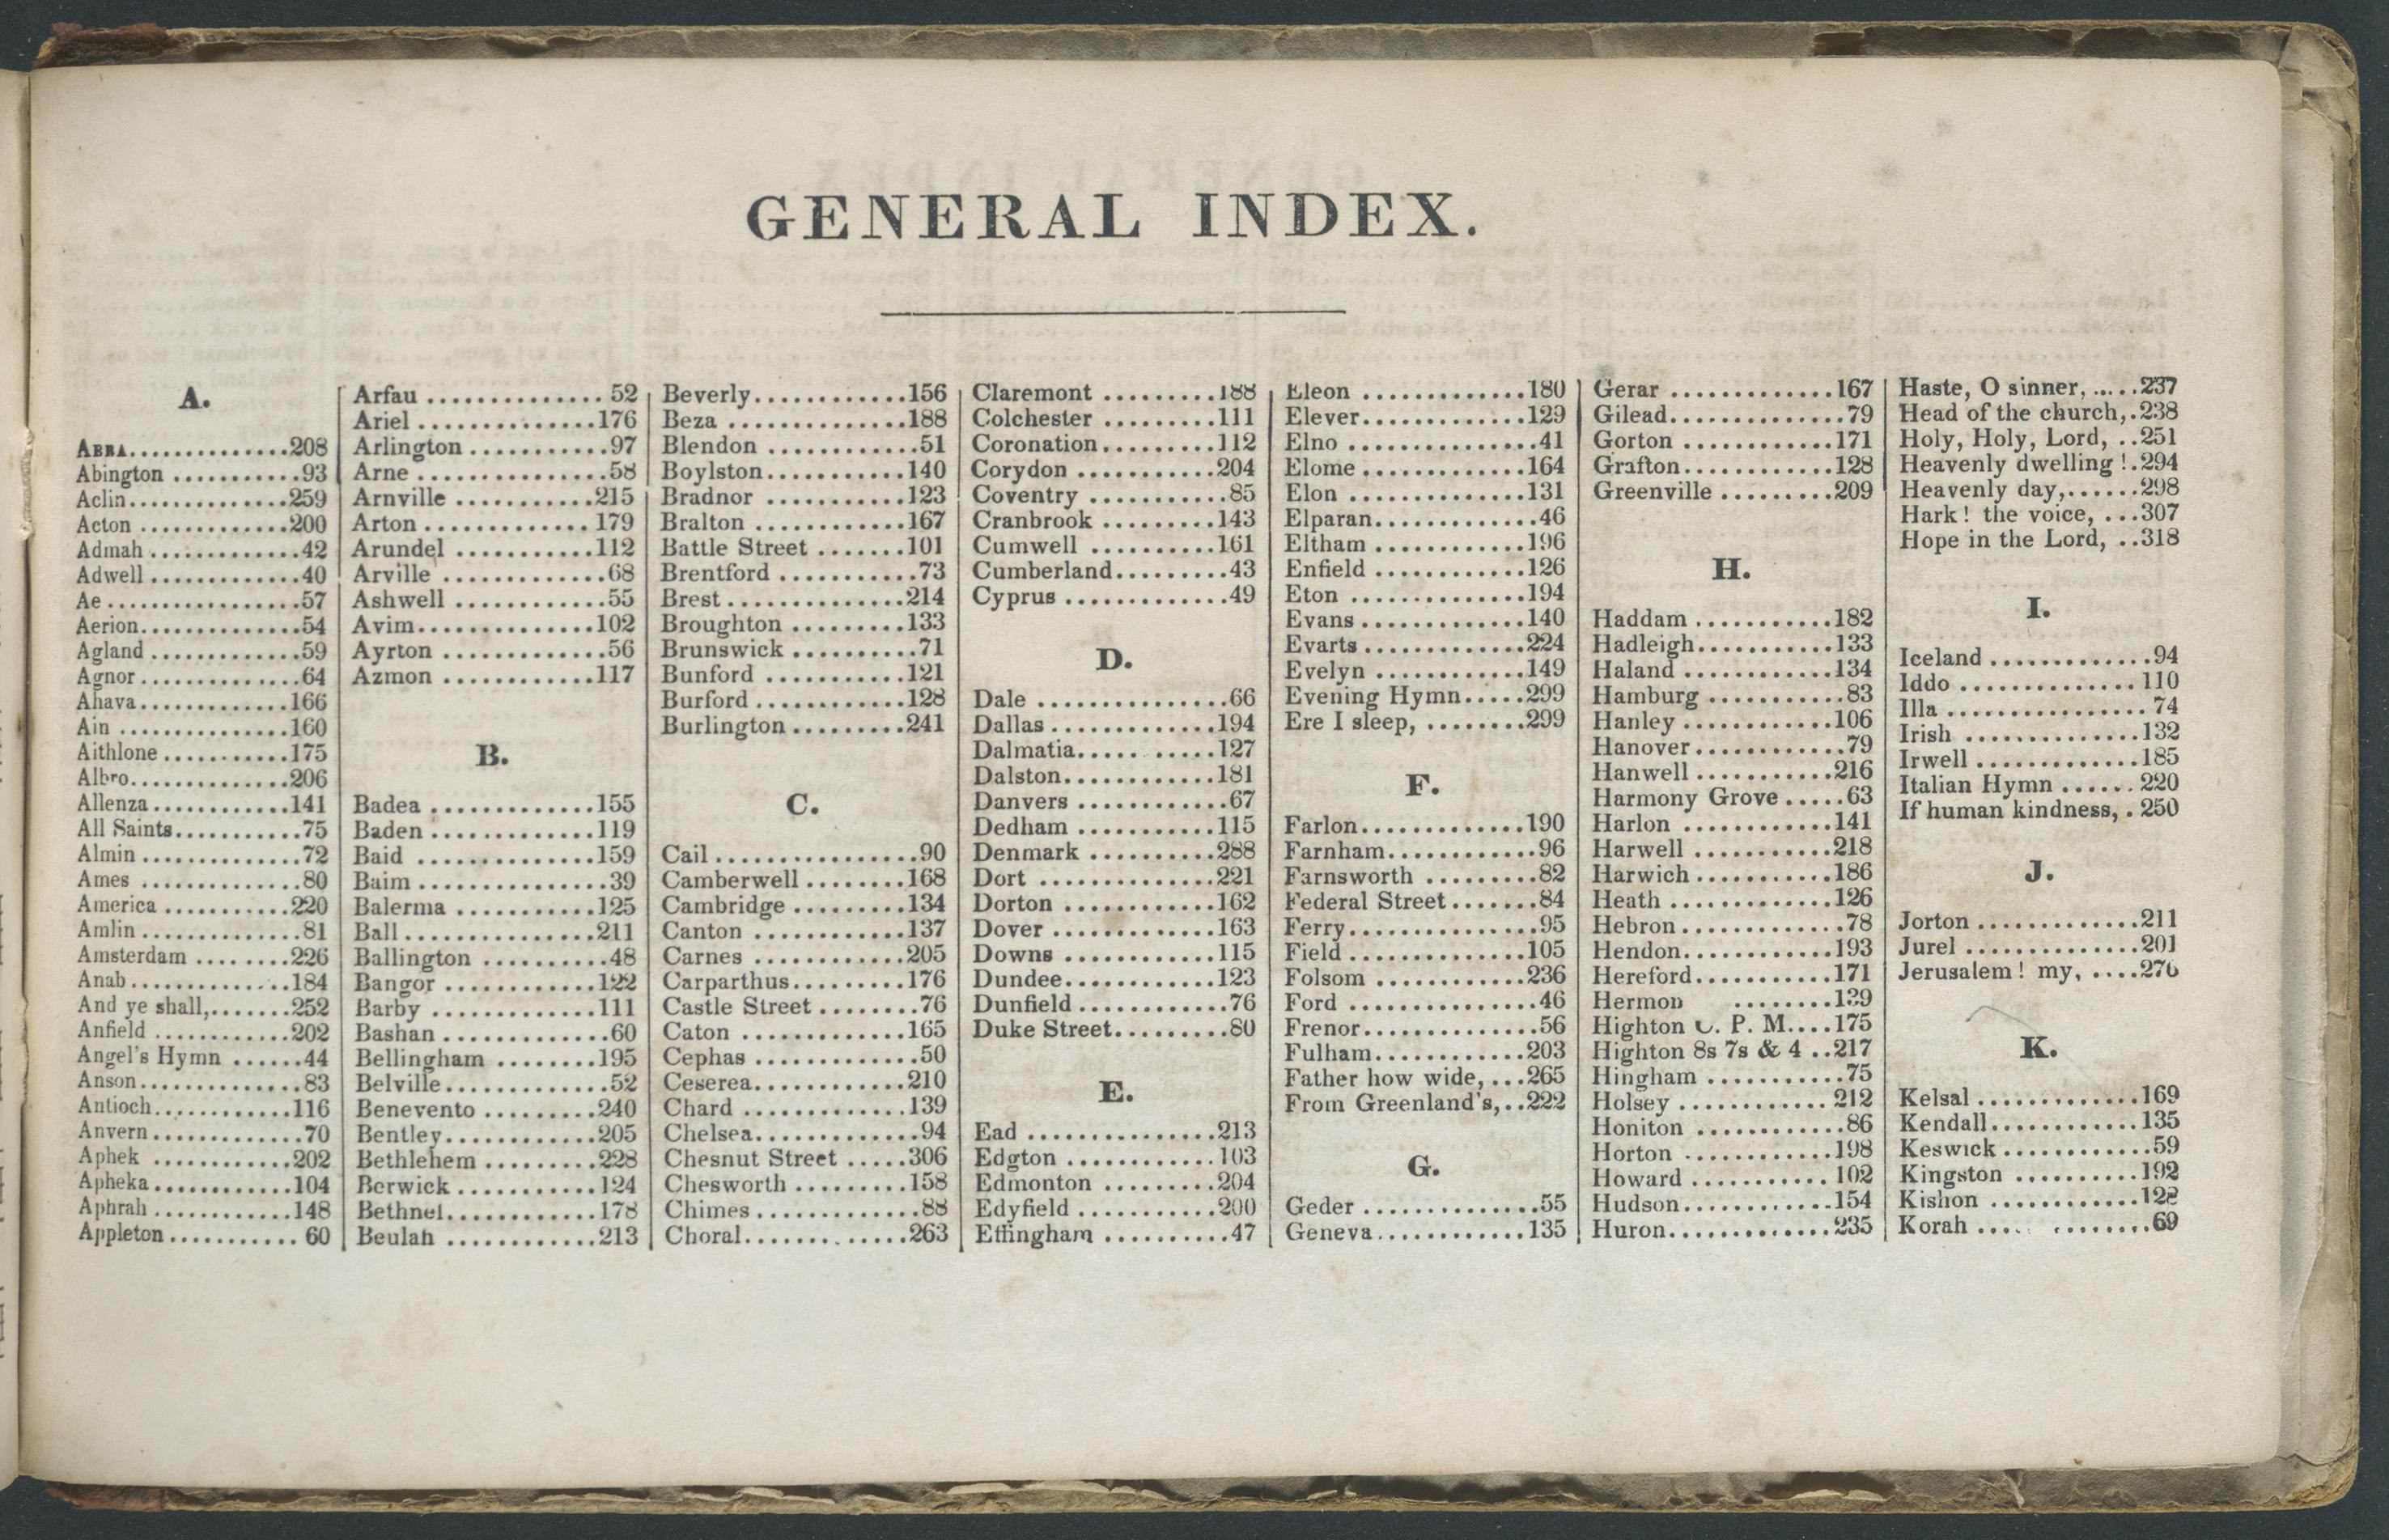 GENERAL INDEX.
A.
ABBA...............208
Abington ...........93
Aclin..............259
Acton .............200
Admah .............42
Adwell .............40
Ae .................57
Aerion..............54
Agland .............59
Agnor ..............64
Ahava.............166
Ain ...............160
Aithlone ...........175
Albro..............206
Allenza............141
All Saints...........75
Almin ..............72
Ames ..............80
America ...........220
Amlin ..............81
Amsterdam ........226
Anab..............184
And ye shall,.......252
Anfield ............202
Angel's Hymn ......44
Anson..............83
Antioch............116
Anvern.............70
Aphek ............202
Apheka............104
Aphrah ............148
Appleton ........... 60
Arfau .............. 52
Ariel ..............176
Arlington ...........97
Arne ...............58
Arnville ...........215
Arton ............. 179
Arundel ...........112
Arville .............68
Ashwell ............55
Avim..............102
Ayrton .............56
Azmon ............117
B.
Badea .............155
Baden .............119
Baid ..............159
Baim ...............39
Balerma ...........125
Ball................211
Ballington ..........48
Bangor ............122
Barby .............111
Bashan .............60
Bellingham ........195
Belville.............52
Benevento .........240
Bentley............205
Bethlehem .........228
Berwick............124
Bethnel............178
Beulah ............213
Beverly............156
Beza ..............188
Blendon ............51
Boylston...........140
Bradnor ...........123
Bralton ............167
Battle Street .......101
Brentford ...........73
Brest ..............214
Broughton .........133
Brunswick ..........71
Bunford ...........121
Burford ............128
Burlington .........241
C.
Cail ................90
Camberwell ........168
Cambridge .........134
Canton ............137
Carnes ............205
Carparthus.........176
Castle Street ........76
Caton .............165
Cephas .............50
Ceserea............210
Chard .............139
Chelsea.............94
Chesnut Street .....306
Chesworth .........158
Chimes .............88
Choral.............263
Claremont .........188
Colchester .........111
Coronation.........112
Corydon ...........204
Coventry ...........85
Cranbrook .........143
Cumwell ..........161
Cumberland.........43
Cyprus .............49
D.
Dale ...............66
Dallas .............194
Dalmatia...........127
Dalston............181
Danvers ............67
Dedham ...........115
Denmark ..........288
Dort ..............221
Dorton ............162
Dover .............163
Downs ............115
Dundee............123
Dunfield ............76
Duke Street.........80
E.
Ead ...............213
Edgton ............103
Edmonton .........204
Edyfield ...........200
Effingham ..........47
Eleon .............180
Elever.............129
Elno ...............41
Elome .............164
Elon ..............131
Elparan.............46
Eltham ............196
Enfield ............126
Eton ..............194
Evans .............140
Evarts .............224
Evelyn ............149
Evening Hymn.....299
Ere I sleep, ........299
F.
Farlon.............190
Farnham............96
Farnsworth .........82
Federal Street .......84
Ferry...............95
Field ..............105
Folsom ............236
Ford ...............46
Frenor..............56
Fulham............203
Father how wide, ...265
From Greenland's,..222
G.
Geder ..............55
Geneva............135
Gerar .............167
Gilead..............79
Gorton ............171
Grafton............128
Greenville .........209
H.
Haddam ...........182
Hadleigh...........133
Haland ............134
Hamburg ...........83
Hanley ............106
Hanover ............79
Hanwell ...........216
Harmony Grove .....63
Harlon ............141
Harwell ...........218
Harwich ...........186
Heath .............126
Hebron .............78
Hendon............193
Hereford...........171
Hermon ........139
Highton C. P. M....175
Highton 8s 7s & 4 ..217
Hingham ...........75
Holsey ............ 212
Honiton ............86
Horton ............198
Howard ........... 102
Hudson............154
Huron.............235
Haste, O sinner, .....237
Head of the church,.238
Holy, Holy, Lord, ..251
Heavenly dwelling !.294
Heavenly day,......298
Hark ! the voice, ...307
Hope in the Lord, ..318
I.
Iceland .............94
Iddo .............. 110
Illa ................ 74
Irish ..............132
Irwell .............185
Italian Hymn ...... 220
If human kindness, . 250
J.
Jorton .............211
Jurel ..............201
Jerusalem ! my, ....276
K.
Kelsal .............169
Kendall............135
Keswick ............59
Kingston ..........192
Kishon ............128
Korah .............69